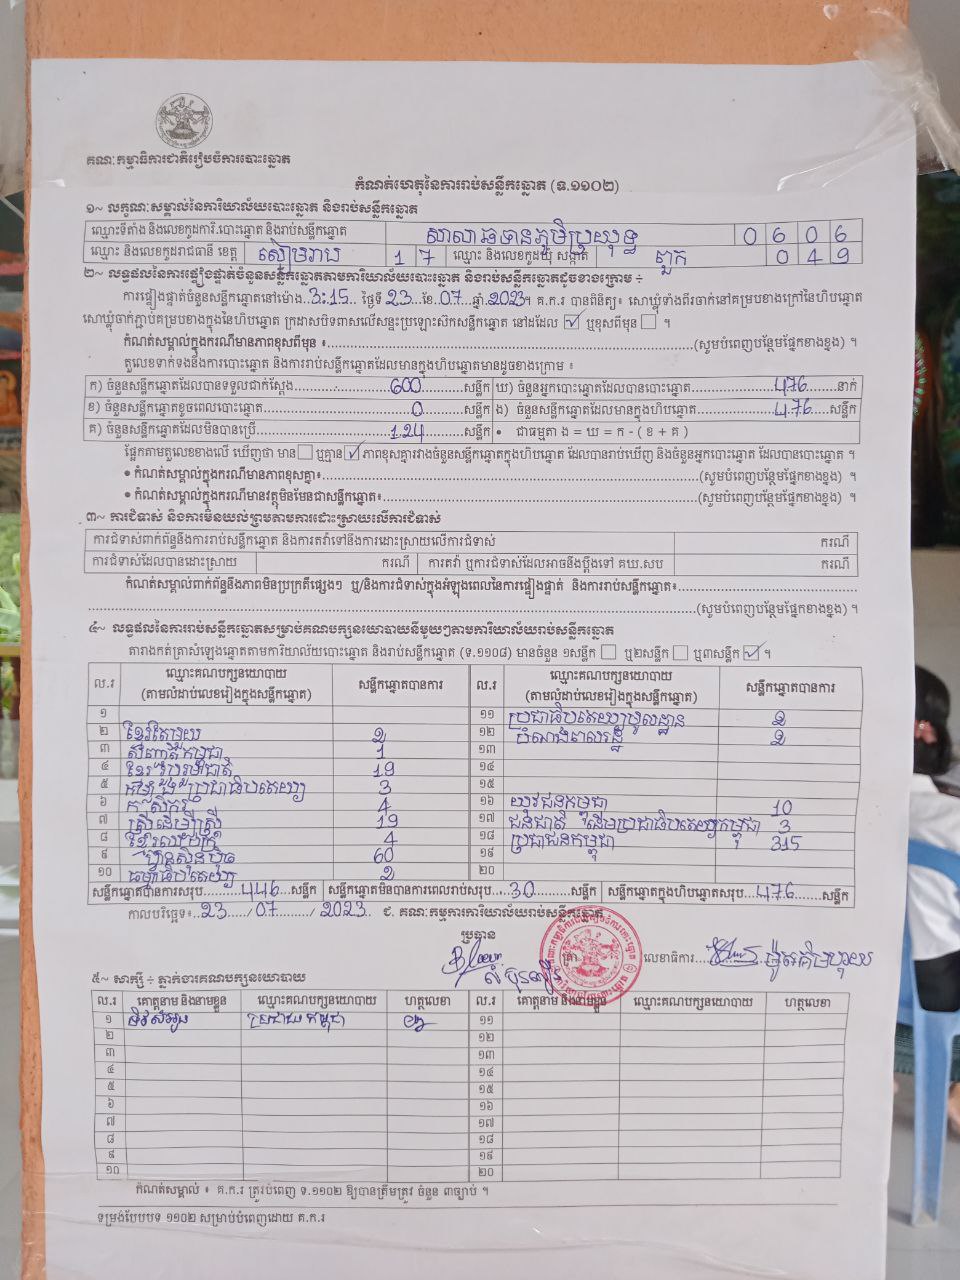 គណៈកម្មាធិការជាតិរៀបចំការបោះឆ្នោត
កំណត់ហេតុនៃការរាប់សន្លឹកឆ្នោត (ទ.១១០២)
១~ លក្ខណៈសម្គាល់នៃការិយាល័យបោះឆ្នោត និងរាប់សន្លឹកឆ្នោត
ឈ្មោះទីតាំង និងលេខកូដការិ.បោះឆ្នោត និងរាប់សន្លឹកឆ្នោត សាលាឆទានភូមិប្រយុទ្ធ 0 6 0 6
ឈ្មោះ និងលេខកូដរាជធានី ខេត្ត សៀមរាប 1 7 ឈ្មោះ និងលេខកូដឃុំ សង្កាត់ ពួក 0 4 9
២~ លទ្ធផលនៃការផ្ទៀងផ្ទាត់ចំនួនសន្លឹកឆ្នោតតាមការិយាល័យបោះឆ្នោត និងរាប់សន្លឹកឆ្នោតដូចខាងក្រោម ÷
ការផ្ទៀងផ្ទាត់ចំនួនសន្លឹកឆ្នោតនៅម៉ោង 3:15 ថ្ងៃទី 23 ខែ 07 ឆ្នាំ 2023 ។ គ.ក.រ បានពិនិត្យ៖ សោឃ្លុំទាំងពីរចាក់នៅគម្របខាងក្រៅនៃហិបឆ្នោត
សោឃ្លុំចាក់ភ្ជាប់គម្របខាងក្នុងនៃហិបឆ្នោត ក្រដាសបិទពាសលើសន្ទះប្រឡោះស៊កសន្លឹកឆ្នោត នៅដដែល ☑ ឬខុសពីមុន ☐ ។
កំណត់សម្គាល់ក្នុងករណីមានភាពខុសពីមុន ៖ (សូមបំពេញបន្ថែមផ្នែកខាងខ្នង) ។
តួលេខទាក់ទងនឹងការបោះឆ្នោត និងការរាប់សន្លឹកឆ្នោតដែលមានក្នុងហិបឆ្នោតមានដូចខាងក្រោម ៖
ក) ចំនួនសន្លឹកឆ្នោតដែលបានទទួលជាក់ស្តែង 600 សន្លឹក ឃ) ចំនួនអ្នកបោះឆ្នោតដែលបានបោះឆ្នោត 476 នាក់
ខ) ចំនួនសន្លឹកឆ្នោតខូចពេលបោះឆ្នោត 0 សន្លឹក ង) ចំនួនសន្លឹកឆ្នោតដែលមានក្នុងហិបឆ្នោត 476 សន្លឹក
គ) ចំនួនសន្លឹកឆ្នោតដែលមិនបានប្រើ 124 សន្លឹក • ជាធម្មតា ង = ឃ = ក - ( ខ + គ )
ផ្អែកតាមតួលេខខាងលើ ឃើញថា មាន ☐ ឬគ្មាន ☑ ភាពខុសគ្នារវាងចំនួនសន្លឹកឆ្នោតក្នុងហិបឆ្នោត ដែលបានរាប់ឃើញ និងចំនួនអ្នកបោះឆ្នោត ដែលបានបោះឆ្នោត ។
• កំណត់សម្គាល់ក្នុងករណីមានភាពខុសគ្នា៖ (សូមបំពេញបន្ថែមផ្នែកខាងខ្នង) ។
• កំណត់សម្គាល់ក្នុងករណីមានវត្ថុមិនមែនជាសន្លឹកឆ្នោត៖ (សូមបំពេញបន្ថែមផ្នែកខាងខ្នង) ។
៣~ ការជំទាស់ និងការមិនយល់ព្រមតាមការដោះស្រាយលើការជំទាស់
ការជំទាស់ពាក់ព័ន្ធនឹងការរាប់សន្លឹកឆ្នោត និងការតវ៉ាទៅនឹងការដោះស្រាយលើការជំទាស់ ករណី
ការជំទាស់ដែលបានដោះស្រាយ ករណី ការតវ៉ា ឬការជំទាស់ដែលអាចនឹងប្តឹងទៅ គឃ.សប ករណី
កំណត់សម្គាល់ពាក់ព័ន្ធនឹងភាពមិនប្រក្រតីផ្សេងៗ ឬ/និងការជំទាស់ក្នុងអំឡុងពេលនៃការផ្ទៀងផ្ទាត់ និងការរាប់សន្លឹកឆ្នោត៖
(សូមបំពេញបន្ថែមផ្នែកខាងខ្នង) ។
៤~ លទ្ធផលនៃការរាប់សន្លឹកឆ្នោតសម្រាប់គណបក្សនយោបាយនីមួយៗតាមការិយាល័យរាប់សន្លឹកឆ្នោត
តារាងកត់ត្រាសំឡេងឆ្នោតតាមការិយាល័យបោះឆ្នោត និងរាប់សន្លឹកឆ្នោត (ទ.១១០៨) មានចំនួន ១សន្លឹក ☐ ឬ២សន្លឹក ☐ ឬ៣សន្លឹក ☑ ។
ល.រ ឈ្មោះគណបក្សនយោបាយ (តាមលំដាប់លេខរៀងក្នុងសន្លឹកឆ្នោត) សន្លឹកឆ្នោតបានការ ល.រ ឈ្មោះគណបក្សនយោបាយ (តាមលំដាប់លេខរៀងក្នុងសន្លឹកឆ្នោត) សន្លឹកឆ្នោតបានការ
១ ១១ ប្រជាធិបតេយ្យមូលដ្ឋាន 2
២ ខ្មែរតែមួយ 2 ១២ បំណងពលរដ្ឋ 2
៣ សញ្ជាតិកម្ពុជា 1 ១៣
៤ ខ្មែររួបរួមជាតិ 19 ១៤
៥ កម្លាំងប្រជាធិបតេយ្យ 3 ១៥
៦ កសិករ 4 ១៦ យុវជនកម្ពុជា 10
៧ ស្ត្រីដើម្បីស្ត្រី 19 ១៧ ជនជាតិដើមប្រជាធិបតេយ្យកម្ពុជា 3
៨ ខ្មែរឈប់ក្រ 4 ១៨ ប្រជាជនកម្ពុជា 315
៩ ហ្វ៊ុនស៊ិនប៉ិច 60 ១៩
១០ ធម្មាធិបតេយ្យ 2 ២០
សន្លឹកឆ្នោតបានការសរុប 446 សន្លឹក សន្លឹកឆ្នោតមិនបានការពេលរាប់សរុប 30 សន្លឹក សន្លឹកឆ្នោតក្នុងហិបឆ្នោតសរុប 476 សន្លឹក
កាលបរិច្ឆេទ៖ 23 / 07 / 2023 ជ. គណៈកម្មការការិយាល័យរាប់សន្លឹកឆ្នោត
ប្រធាន
ត្រា លេខាធិការ
៥~ សាក្សី ÷ ភ្នាក់ងារគណបក្សនយោបាយ
ល.រ គោត្តនាម និងនាមខ្លួន ឈ្មោះគណបក្សនយោបាយ ហត្ថលេខា ល.រ គោត្តនាម និងនាមខ្លួន ឈ្មោះគណបក្សនយោបាយ ហត្ថលេខា
១ ប្រជាជនកម្ពុជា ១១
២ ១២
៣ ១៣
៤ ១៤
៥ ១៥
៦ ១៦
៧ ១៧
៨ ១៨
៩ ១៩
១០ ២០
កំណត់សម្គាល់ ៖ គ.ក.រ ត្រូវបំពេញ ទ.១១០២ ឱ្យបានត្រឹមត្រូវ ចំនួន ៣ច្បាប់ ។
ទម្រង់បែបបទ ១១០២ សម្រាប់បំពេញដោយ គ.ក.រ